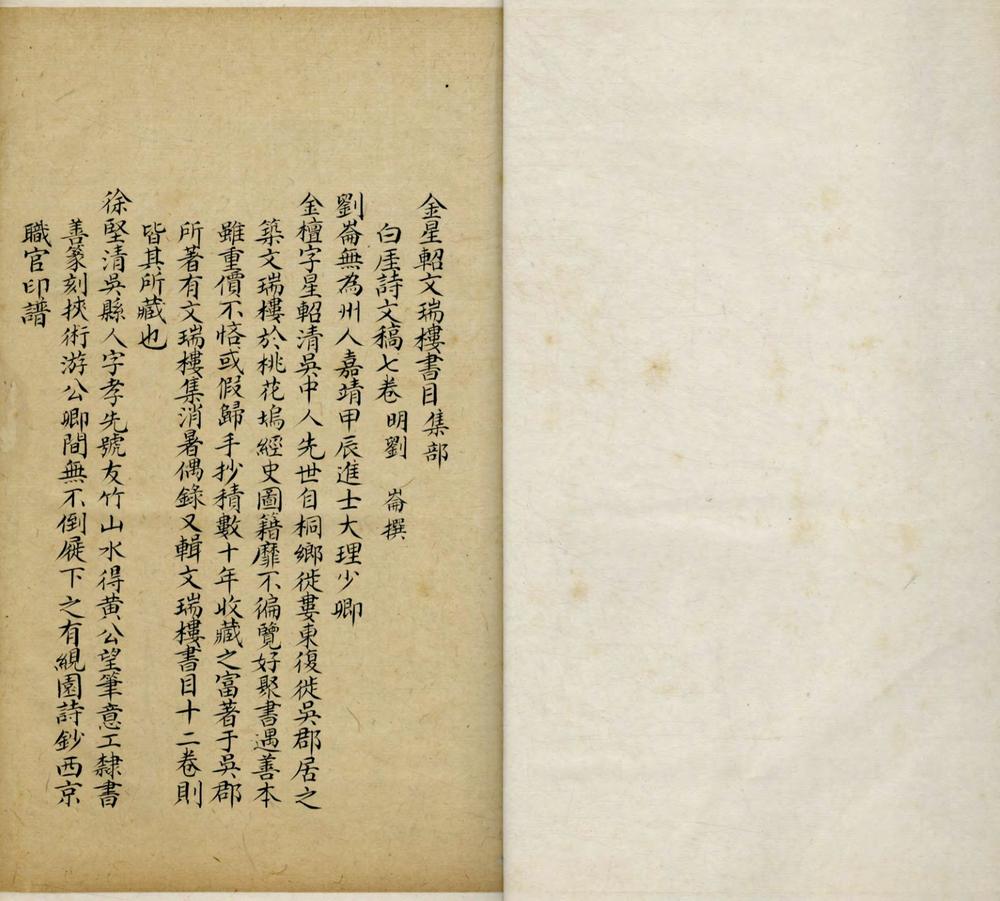 金星軺文瑞樓書目集部
白厓詩文稿七卷 明劉 崙撰
劉崙無為州人嘉靖甲辰進士大理少卿
金檀字星軺清吳中人先世自桐鄉徙婁東復徙吳郡居之
築文瑞樓於桃花塢經史圖籍靡不徧覽好聚書遇善本
雖重價不悋或假歸手抄積數十年收藏之富著于吳郡
所著有文瑞樓集消暑偶錄又輯文瑞樓書目十二卷則
皆其所藏也
徐堅清吳縣人字孝先號友竹山水得黃公望筆意工隸書
善篆刻挾術游公卿間無不倒屣下之有䋎園詩鈔西京
職官印譜